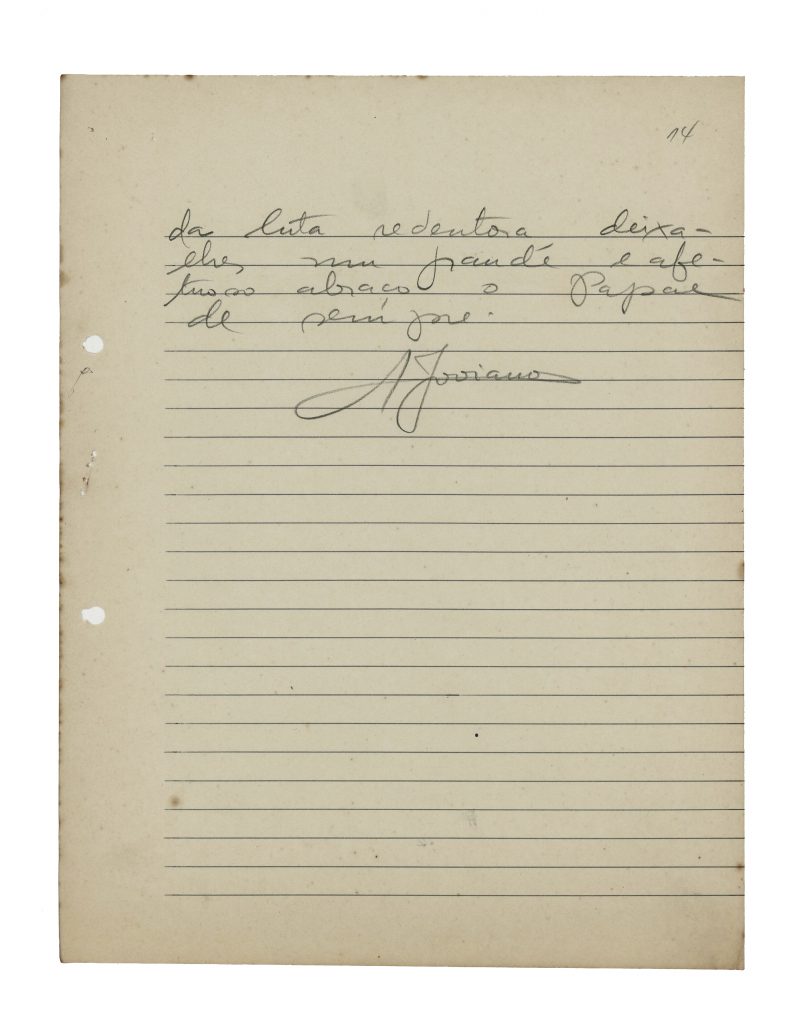 14
da luta redentora deixa-
lhes um grande e afe-
tuoso abraço o Papae
de sempre.
A Joviano